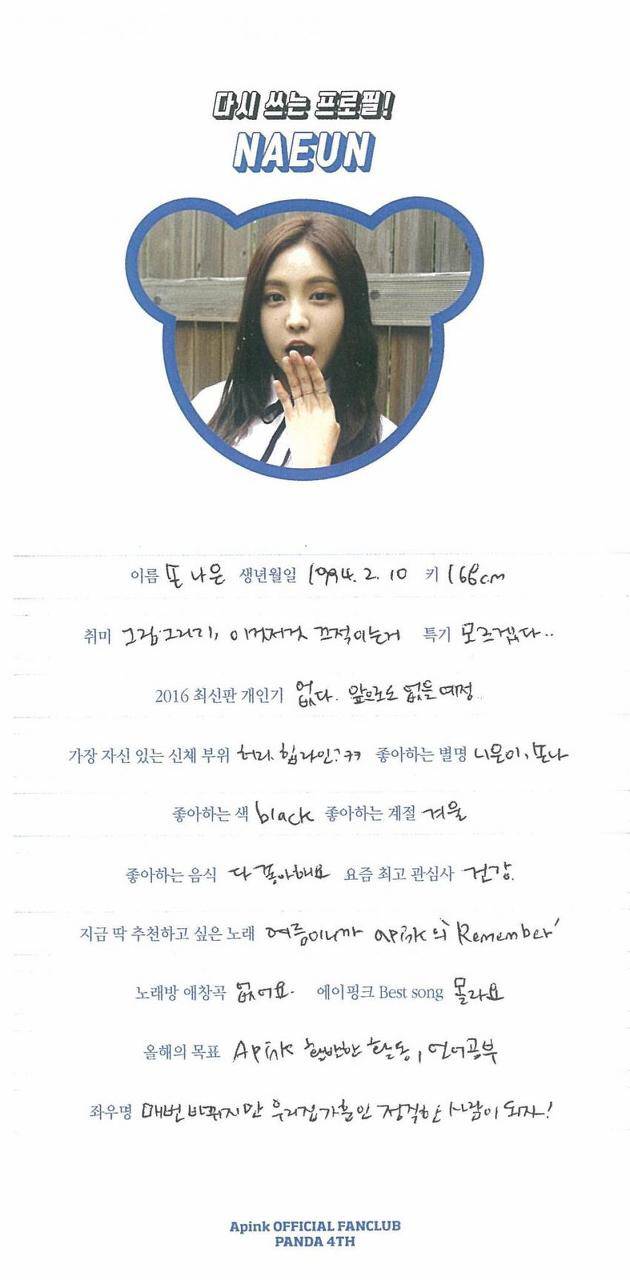 다시 쓰는 프로필!
NAEUN
이름 또 나은 생년월일 1994. 2. 10 키 168cm
취미 그림그리기, 이것저것 끄적이는거 특기 모르겠다..
2016 최신판 개인기 없다. 앞으로도 없을 예정
가장 자신 있는 신체 부위 허리. 힙라인?ㅋㅋ 좋아하는 별명 니은이, 또나
좋아하는 색 black 좋아하는 계절 겨울
좋아하는 음식 다 좋아해요 요즘 최고 관심사 건강.
지금 딱 추천하고 싶은 노래 여름이니까 apink의 'Remember'
노래방 애창곡 없어요. 에이핑크 Best song 몰라요
올해의 목표 Apink 활발한 활동, 언어공부
좌우명 매번 바뀌지만 우리집가훈인 정직한 사람이 되자!
Apink OFFICIAL FANCLUB
PANDA 4TH